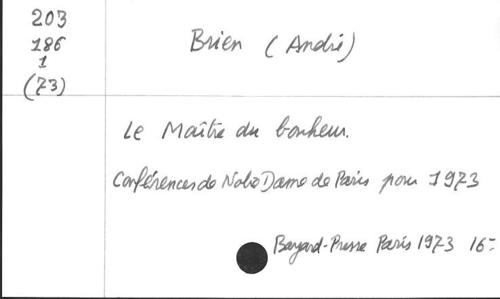 203
186
1
(73)
Brien (André)
Le Maître du bonheur.
Conférences de Notre Dame de Paris pour 1973
Bayard-Presse Paris 1973 16-